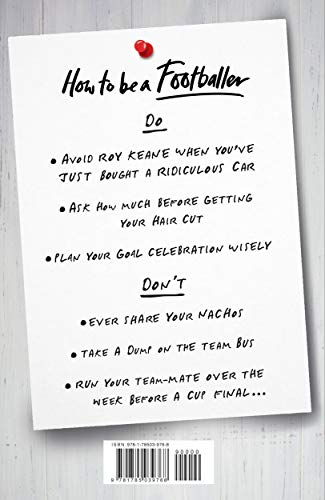 How to be a Footballer
Do
• AVOID ROY KEANE WHEN YOU'VE
JUST BOUGHT A RIDICULOUS CAR
• ASK HOW MUCH BEFORE GETTING
YOUR HAIR CUT
• PLAN YOUR GOAL CELEBRATION WISELY
DON'T
• EVER SHARE YOUR NACHOS
• TAKE A DUMP ON THE TEAM BUS
• RUN YOUR TEAM-MATE OVER THE
WEEK BEFORE A CUP FINAL...
ISBN 978-1-78503-976-8
90000
9 781785 039768